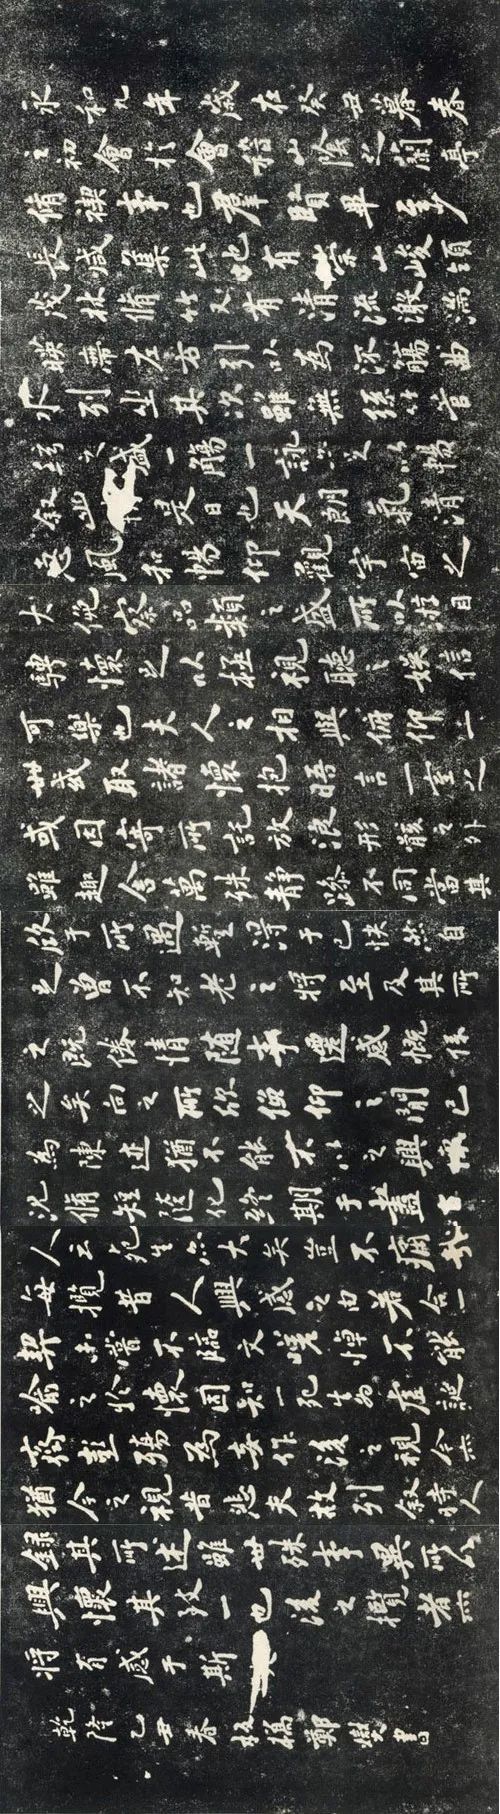 永和九年歲在癸丑暮春
之初會於會稽山陰之蘭亭
脩禊事也羣賢畢至少
長咸集此地有崇山峻領
茂林脩竹又有清流激湍
暎帶左右引以為流觴曲
水列坐其次雖無絲竹管
弦之盛一觴一詠亦足以暢
敘幽是日也天朗氣清
惠風和暢仰觀宇宙之
大俯察品類之盛所以遊目
騁懷足以極視聽之娛信
可樂也夫人之相與俯仰一
世或取諸懷抱晤言一室之
或因寄所託放浪形骸之外
雖趣舍萬殊靜躁不同當其
欣于所遇暫得于己快然自
足曾不知老之將至及其所
之既倦情隨事遷感慨係
之矣向之所欣俛仰之間已
為陳迹猶不能不以之興
況脩短隨化終期于盡
人云死生亦大矣豈不痛哉
每攬昔人興感之由若合一
契未嘗不臨文嗟悼不能
喻之於懷固知一死生為虛誕
齊彭殤為妄作後之視今亦
猶今之視昔悲夫故列敘時人
錄其所述雖世殊事異所以
興懷其致一也後之攬者亦
將有感于斯
乾隆己丑春板橋鄭燮書